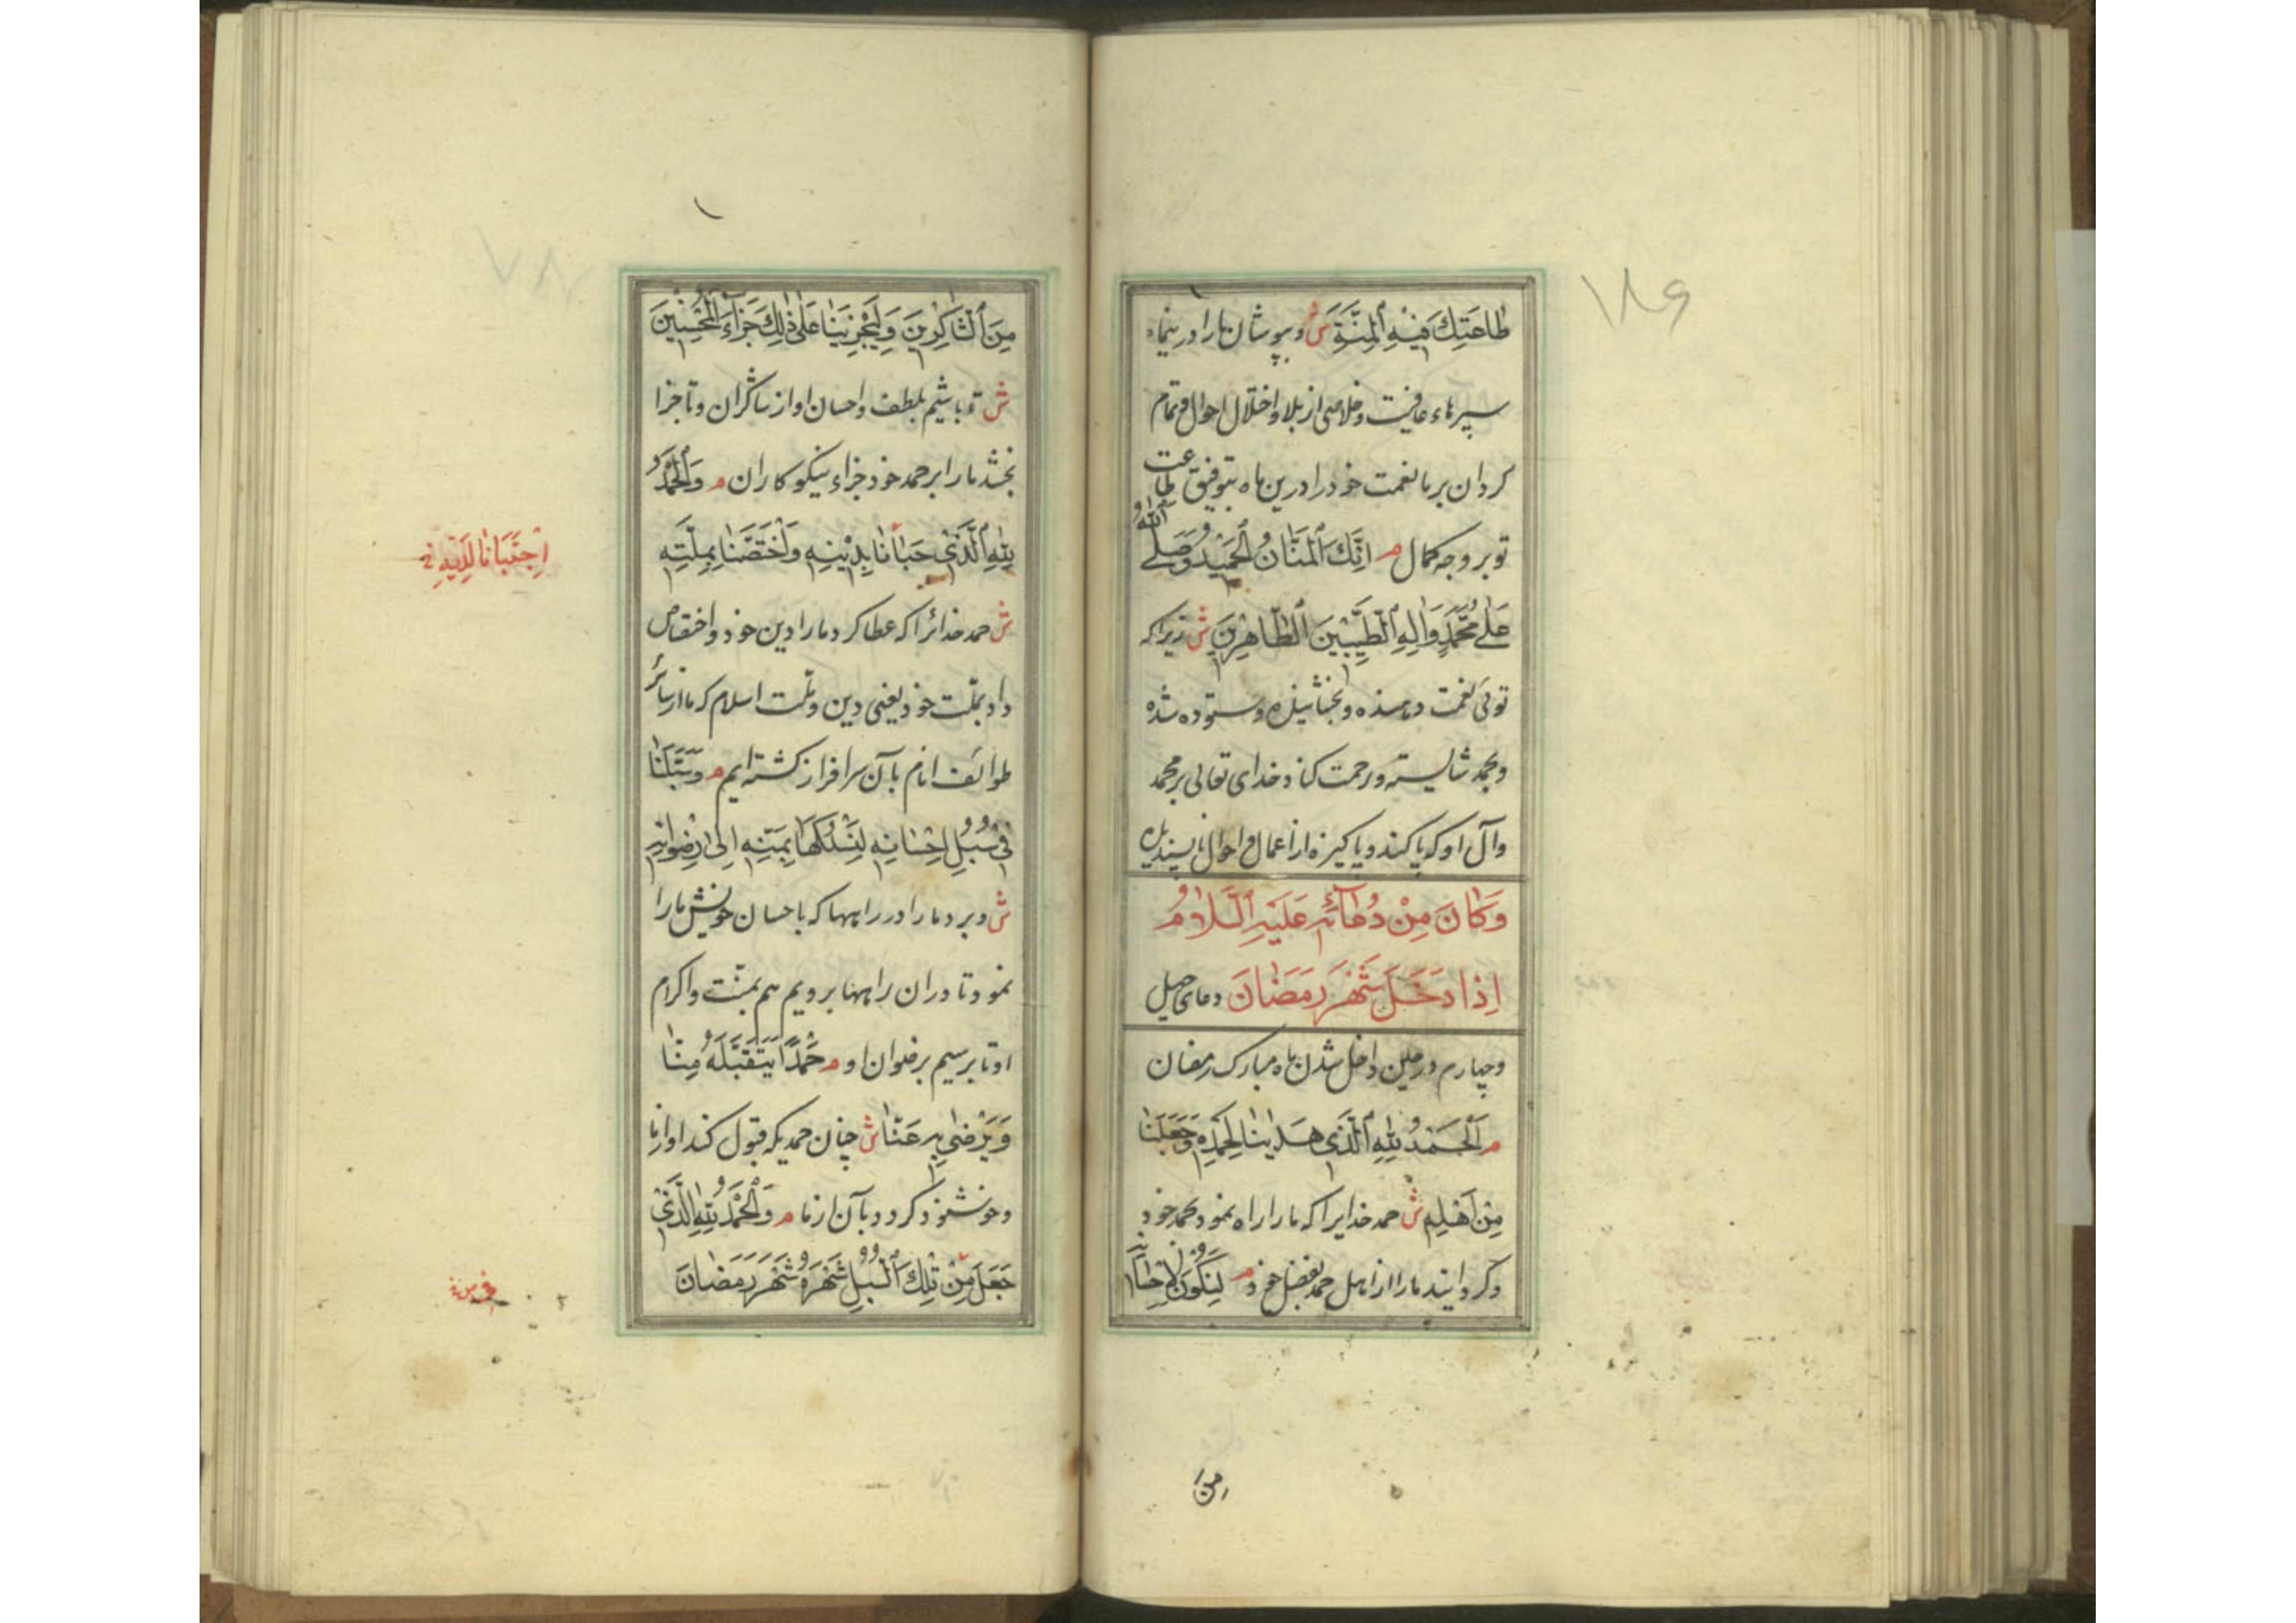 ۱۸۶
طاعَتِكَ فيهِ الْمِنَّةَ ش وبپوشان مارا درینماه
سپرهاء عافیت وخلاصی از بلا واختلال احوال وتمام
کردان بر ما نعمت خود را درین ماه بتوفیق طاعت
تو بر وجه کمال م اِنَّكَ الْمَنّانُ الْحَميدُ وَصَلَّى اللهُ
عَلى مُحَمَّدٍ وَالِهِ الطَّيِّبينَ الطّاهِرينَ ش زیرا که
توئی نعمت دهنده وبخشاینده وستوده شده
وبحمد شایسته ورحمت کناد خدای تعالی بر محمد
وآل او که پاکند وپاکیزه از اعمال واحوال ناپسندیده
وَكانَ مِنْ دُعائِهِ عَلَيْهِ السَّلامُ
اِذا دَخَلَ شَهْرُ رَمَضانَ دعای چهل
وچهارم در حین داخل شدن ماه مبارک رمضان
م اَلْحَمْدُ لِلّهِ الَّذى هَدانا لِحَمْدِهِ وَجَعَلَنا
مِنْ اَهْلِهِ ش حمد خدایرا که ما را راه نمود بحمد خود
وکردانید ما را از اهل حمد بفضل خود م لِنَكُونَ لِاِحْسانِهِ
مِنَ
مِنَ الشّاكِرينَ وَلِيَجْزِيَنا عَلى ذلِكَ جَزاءَ الْمُحْسِنينَ
ش تا باشیم بلطف واحسان او از شاکران وتا جزا
بخشد ما را بر حمد خود جزاء نیکوکاران م وَالْحَمْدُ
لِلّهِ الَّذى حَبانا بِدينِهِ وَاخْتَصَّنا بِمِلَّتِهِ
ش حمد خدائرا که عطا کرد ما را دین خود واختصاص
داد بملّت خود یعنی دین وملّت اسلام که ما از سائر
طوائف انام بآن سرافراز کشته ایم م وَسَبَّلَنا
فى سُبُلِ اِحْسانِهِ لِنَسْلُكَها بِمَنِّهِ اِلى رِضْوانِهِ
ش وبرد ما را در راهها که باحسان خویش ما را
نمود تا دران راهها برویم هم بمنّت واکرام
او تا برسیم برضوان او م حَمْدًا يَتَقَبَّلُهُ مِنّا
وَيَرْضى بِهِ عَنّا ش چنان حمدیکه قبول کند او از ما
وخوشنود کردد بآن از ما م وَالْحَمْدُ لِلّهِ الَّذى
جَعَلَ مِنْ تِلْكَ السُّبُلِ شَهْرَهُ شَهْرَ رَمَضانَ